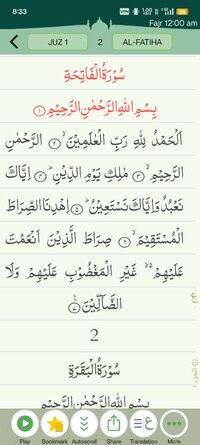 8:33
Fajr 12:00 am
JUZ 1 2 AL-FATIHA
سُوْرَةُ الْفَاتِحَةِ
بِسْمِ اللهِ الرَّحْمٰنِ الرَّحِيْمِ ۝۱
اَلْحَمْدُ لِلّٰهِ رَبِّ الْعٰلَمِيْنَ ۝۲ الرَّحْمٰنِ
الرَّحِيْمِ ۝۳ مٰلِكِ يَوْمِ الدِّيْنِ ۝۴ اِيَّاكَ
نَعْبُدُ وَاِيَّاكَ نَسْتَعِيْنُ ۝۵ اِهْدِنَا الصِّرَاطَ
الْمُسْتَقِيْمَ ۝۶ صِرَاطَ الَّذِيْنَ اَنْعَمْتَ
عَلَيْهِمْ غَيْرِ الْمَغْضُوْبِ عَلَيْهِمْ وَلَا
الضَّآلِّيْنَ ۝۷
2
سُوْرَةُ الْبَقَرَةِ
بِسْمِ اللهِ الرَّحْمٰنِ الرَّحِيْمِ
Play Bookmark Autoscroll Share Translation More